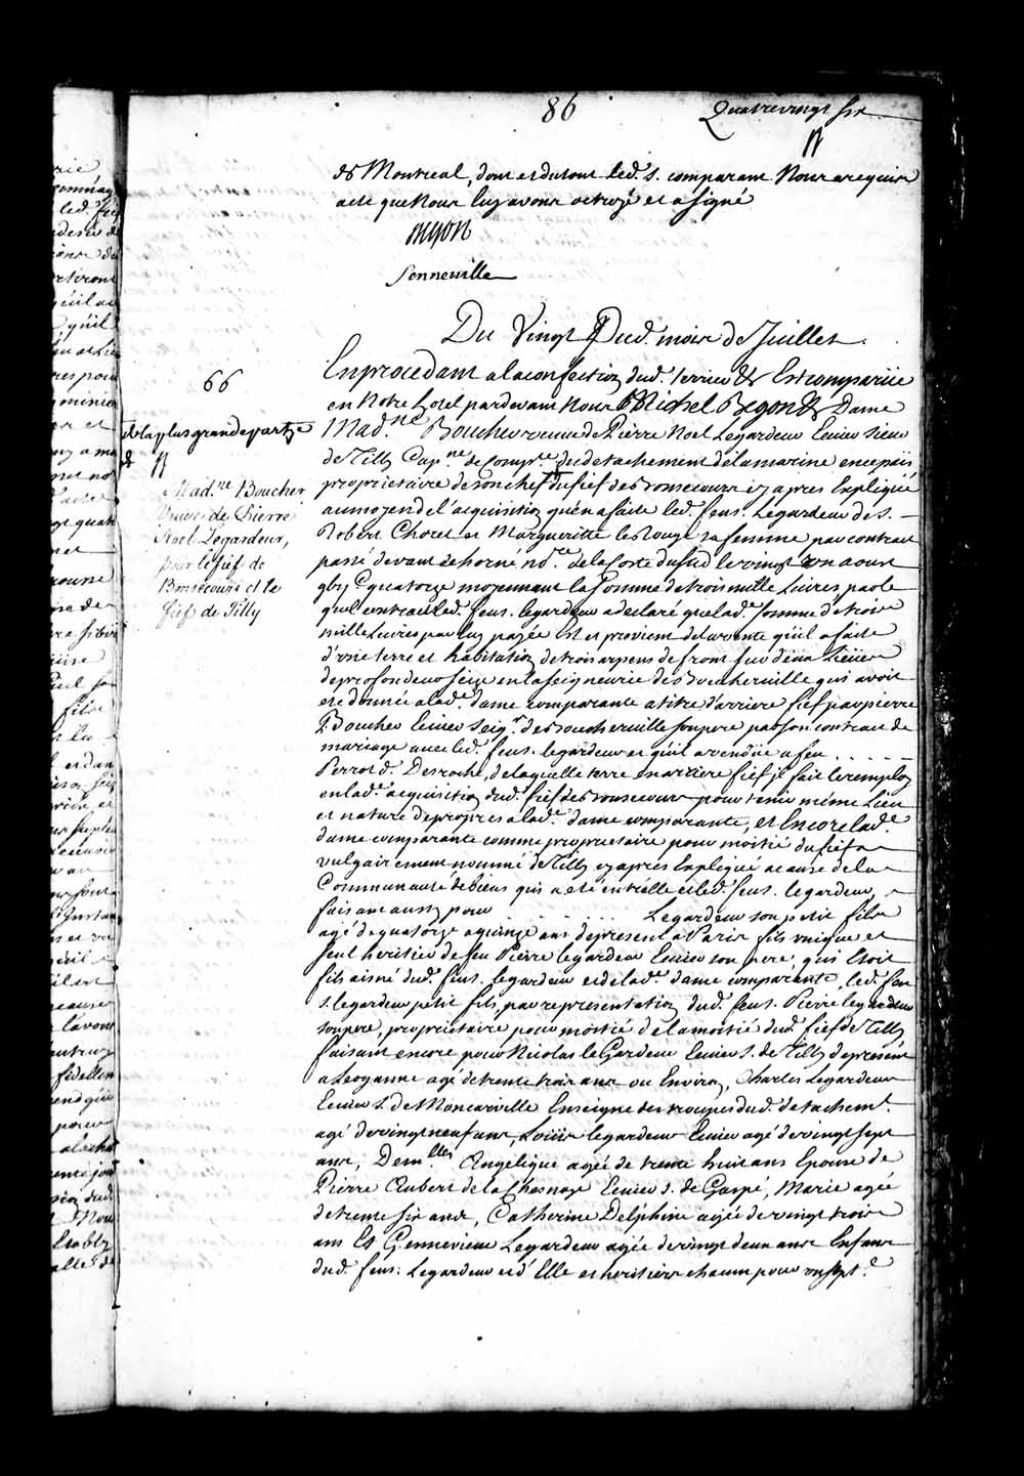 86
Quatrevingt six
de Montreal, dont et du tout led. S. comparant Nous a requis
acte que Nous luy avons octroyé et a signé
Begon
Senneville
Du Vingt dud. mois de Juillet
66
En procedant a la confection dud. terrier &c Est comparüe
en Notre hotel pardevant Nous Michel Begon &c Dame
Mad.ne Boucher veuve de Pierre Noel Legardeur Ecuier Sieur
de Tilly Cap.ne de Comp.ie du detachement de la marine en ce païs
et la plus grande partye
Mad.ne Boucher
Veuve de Pierre
Noel Legardeur,
pour le fief de
Bonsecours et le
fief de Tilly
proprietaire de son chef du fief de Bonsecours cy apres Expliqué
au moyen de l'acquisition qu'en a faite led. feu S. Legardeur de S.
Robert Choret et Margueritte le Rouge sa femme par contrat
passé devant de horné n.re de la Coste du Sud le vingt un aoust
gbi.c quatorze moyennant la somme de trois mille Livres par le
quel contrat led. feu S. legardeur a declaré que lad.e somme de trois
mille Livres par luy payée Est et provient de la vente qu'il a faite
d'une terre et habitation de trois arpens de front sur deux Lieües
de profondeur seize en la seigneurie de Boucherville qui avoit
eté donnée a lad.e dame comparante a titre d'arriere fief par pierre
Boucher Ecuier Seig.r de Boucherville son pere par son contrat de
mariage avec led. feu S. legardeur et qu'il a vendüe a feu . . . . .
Perrot d. Desroche, de laquelle terre en arriere fief il fait le remploy
en lad.e acquisition dud. fief de Bonsecours pour tenir même Lieu
et nature de propres a lad.e dame comparante, et Encore lad.e
dame comparante comme proprietaire pour moitié du fief
vulgairement nommé de Tilly cy aprés Expliqué a cause de la
Communauté de biens qui a eté entr'elle et led. feu S. legardeur,
faisant aussy pour . . . . . . . Legardeur son petit fils
agé de quatorze a quinze ans de present a Paris fils unique et
seul heritier de feu Pierre legardeur Ecuier son pere, qui Etoit
fils aisné dud. feu S. legardeur et de lad.e dame comparante, led. feu
S. legardeur petit fils, par representation dud. feu S. Pierre legardeur
son pere, proprietaire pour moitié de la moitié dud. fief de Tilly
faisant encore pour Nicolas le Gardeur Ecuier S. de Tilly de present
a Leoganne agé de trente trois ans ou Environ, Charles Legardeur
Ecuier S. de Moncarville Enseigne des troupes dud. detachem.t
agé de vingt neuf ans, Loüis legardeur Ecuier agé de vingt sept
ans, Dem.lles Angelique agée de trente huit ans Epouse de
Pierre Aubert de la Chesnaye Ecuier S. de Gaspé, Marie agée
de trente six ans, Catherine Delphine agée de vingt trois
ans Et Gennevieve Legardeur agée de vingt deux ans Enfans
dud. feu S. Legardeur et d'Elle et heritiers chacun pour un sept.e